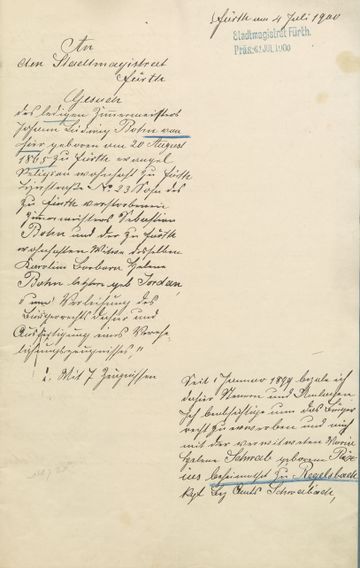 Fürth am 4 Juli 1900
Stadtmagistrat Fürth.
Präs: JUL 1900
An
den Stadtmagistrat
Fürth
Gesuch
des ledigen Zimmermeisters
Johann Ludwig Bohn von
hier geboren am 20 August
1865 zu Fürth evangel
Religion wohnhaft zu Fürth
No 23 Sohn des
zu Fürth verstorbenen
Zimmermeisters Sebastian
Bohn und der zu Fürth
wohnhaften Witwe desselben
Karolin Barbara Helene
Bohn letztere geb Jordan,
"um Verleihung des
Bürgerrechts dahier und
Ausfertigung eines Vereheˀ
lichungszeugnisses,"
Mit 7 Zeugnissen
Seit 1 Januar 1894 bezale ich
dahier Steuern und Umlagen
Ich beabsichtige nun das Bürger
recht zu erwerben und mich
mit der verwitweten Maria
Helene Schwab geborene
beheimathet zu Regelsbach
kgl Bez Amts Schwabach,